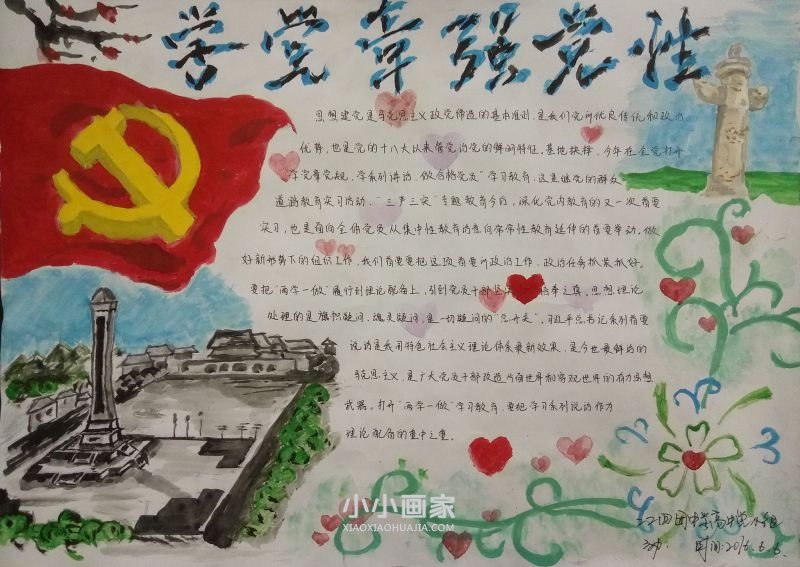 学党章强党性
思想建党是马克思主义政党缔造的基本准则,是我们党的优良传统和政治
优势,也是党的十八大以来管党治党的鲜明特征。基地抉择,今年在全党打开
“学党章党规、学系列讲话,做合格党员”学习教育,这是继党的群众
道路教育实习活动,“三严三实”专题教育今后,深化党内教育的又一次首要
实习,也是面向全体党员从集中性教育向常常性教育延伸的首要举动。做
好新形势下的组织工作,我们首要要把这项首要的政治工作、政治任务抓紧抓好。
要把“两学一做”履行到理论配备上,引到党员干部坚 信奉之真,思想理论
处理的是旗帜疑问、魂灵疑问,是一切疑问的“总开关”,习近平总书记系列首要
说话是我国特色社会主义理论体系最新效果,是今世最鲜活的
马克思主义,是广大党员干部改造片面世界和客观世界的有力思想
武器。打开“两学一做”学习教育,要把学习系列说话作为
理论配备的重中之重。
小小画家
XIAOXIAOHUAJIA.COM
时间:2016.6.6